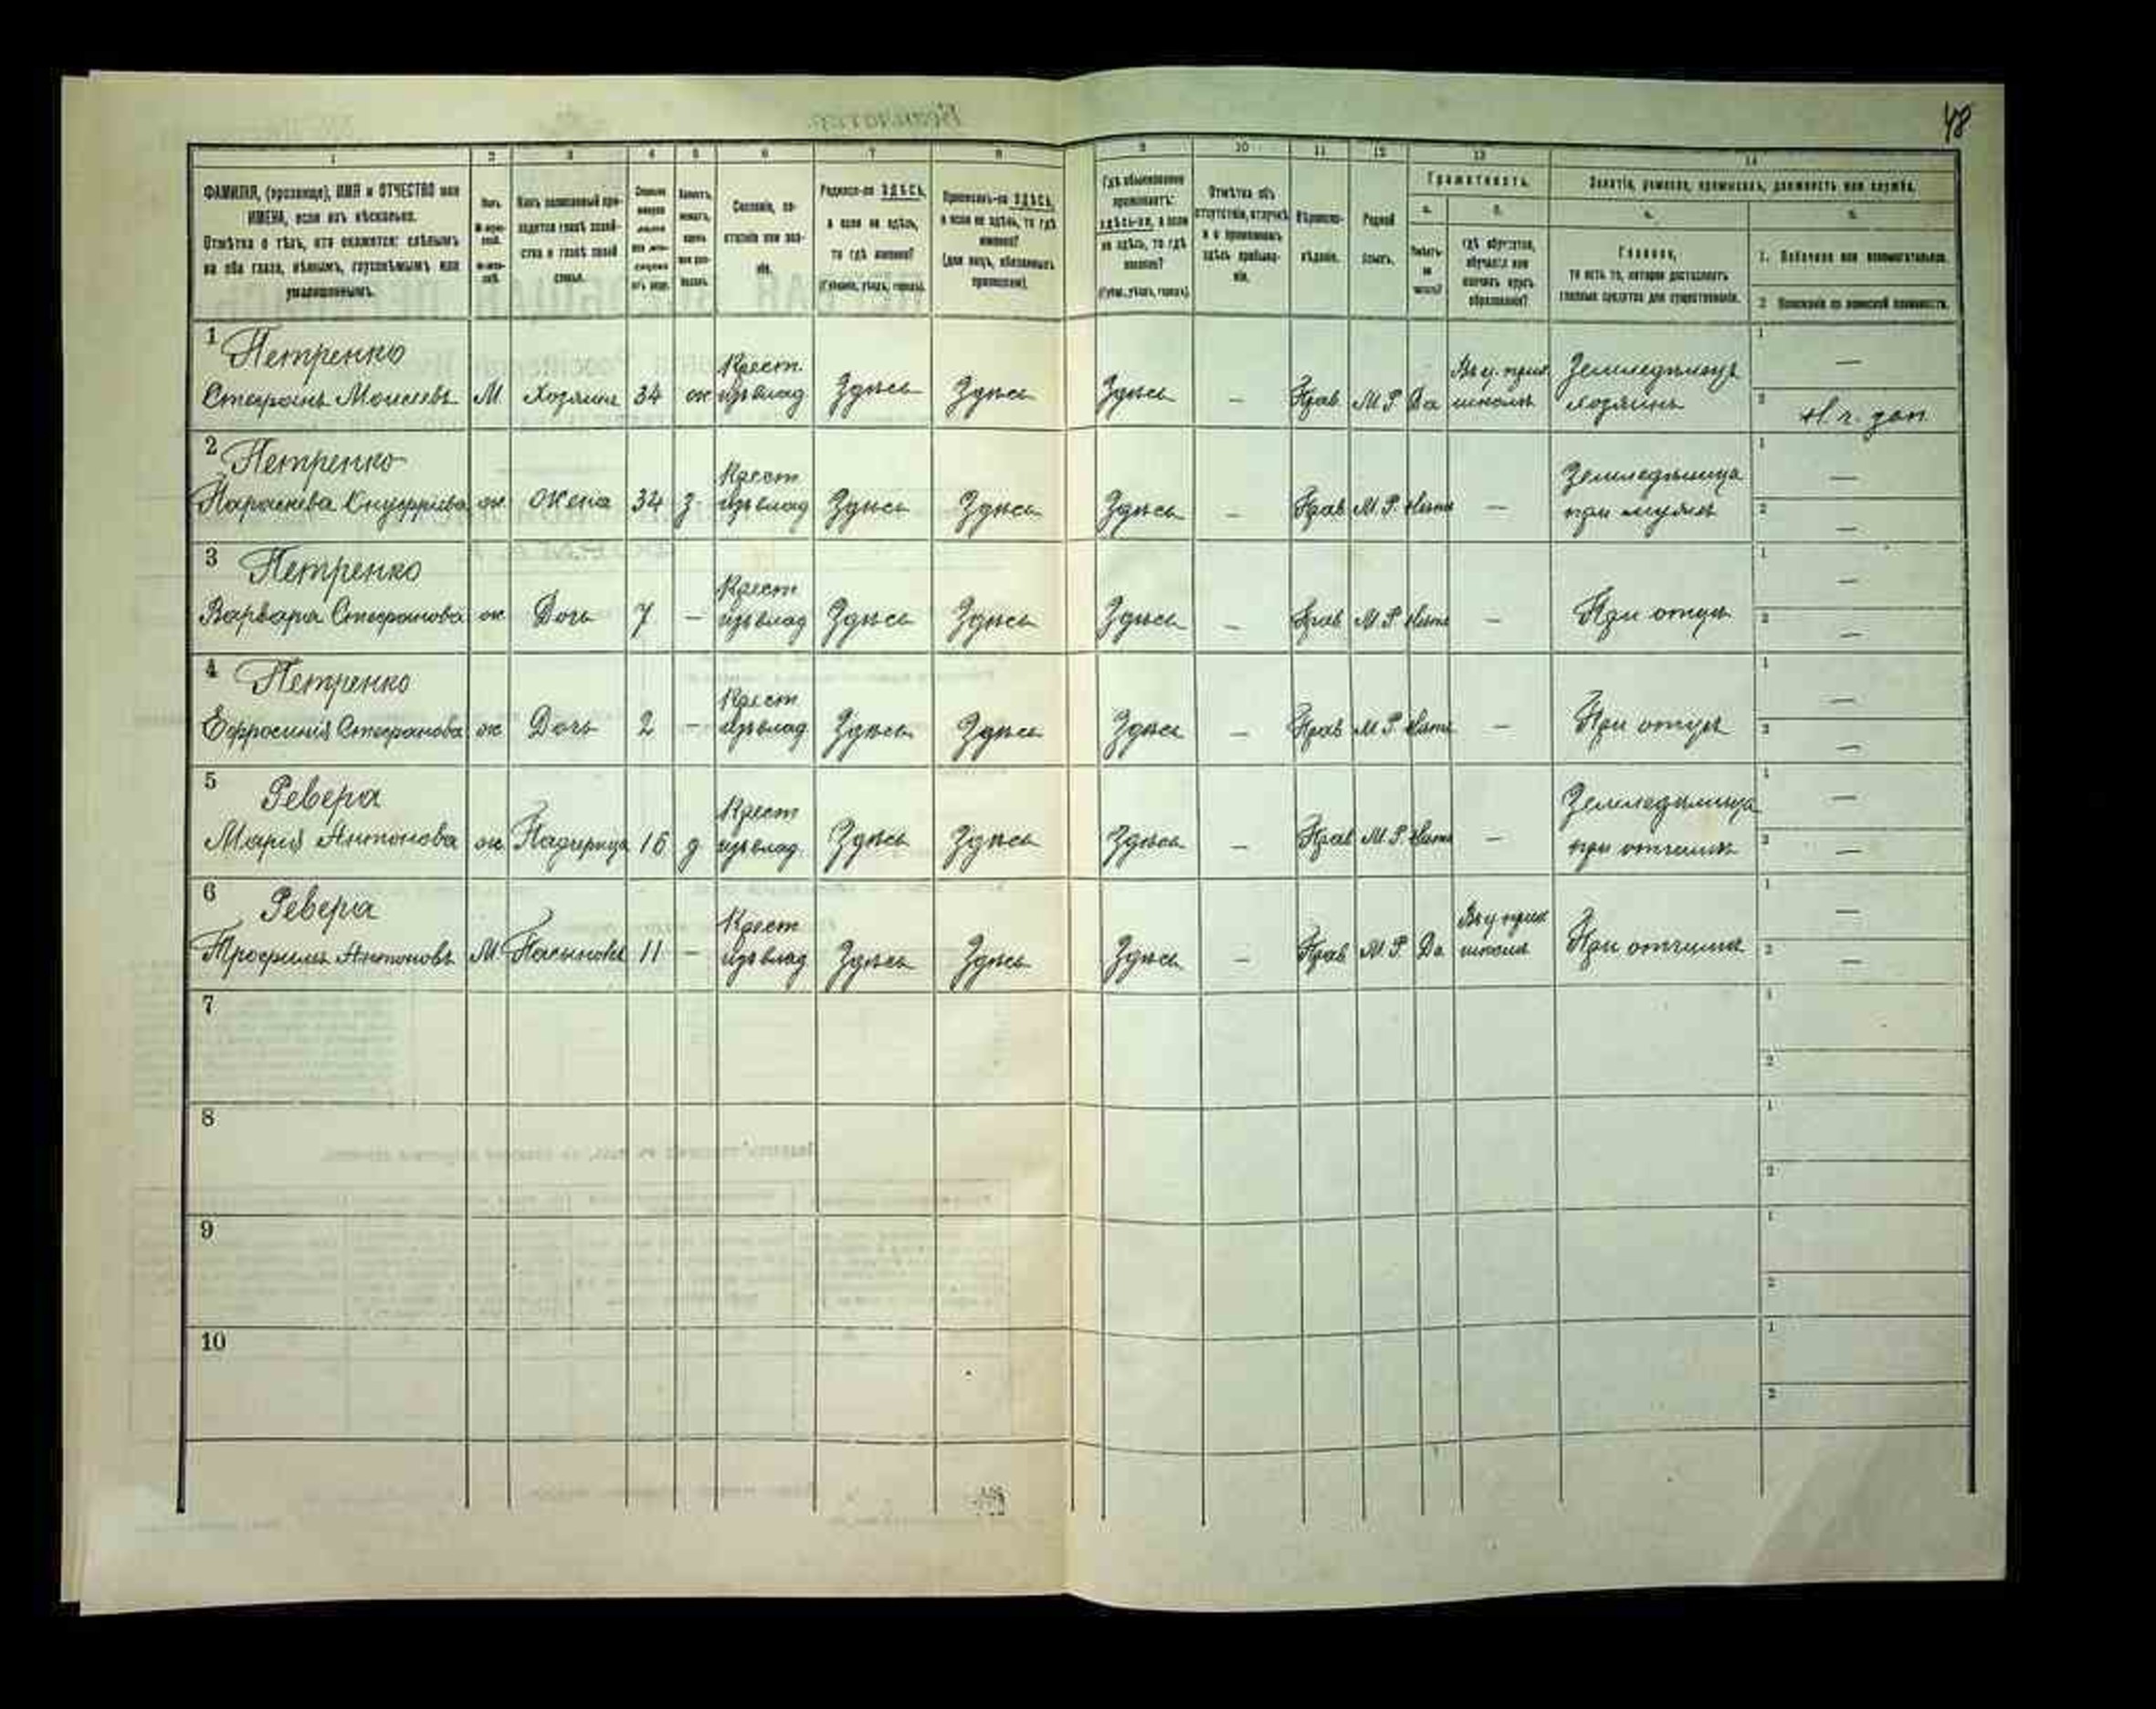 48
1 2 3 4 5 6 7 8 9 10 11 12 13 14
ФАМИЛІЯ, (прозвище), ИМЯ и ОТЧЕСТВО или
ИМЕНА, если ихъ нѣсколько.
Отмѣтка о тѣхъ, кто окажется: слѣпымъ
на оба глаза, нѣмымъ, глухонѣмымъ или
умалишеннымъ.
Полъ.
Какъ записанный при-
ходится главѣ хозяй-
ства и главѣ своей
семьи.
Сословіе, со-
стояніе или зва-
ніе.
Родился-ли ЗДѢСЬ,
а если не здѣсь,
то гдѣ именно?
(Губернія, уѣздъ, городъ).
Приписанъ-ли ЗДѢСЬ,
а если не здѣсь, то гдѣ
именно?
(для лицъ, обязанныхъ
припискою).
Гдѣ обыкновенно
проживаетъ:
здѣсь-ли, а если
не здѣсь, то гдѣ
именно?
(Губер., уѣздъ, городъ).
Отмѣтка объ
отсутствіи, отлучкѣ
и о временномъ
здѣсь пребыва-
ніи.
Вѣроиспо-
вѣданіе.
Родной
языкъ.
Грамотность.
а. б.
Умѣетъ-
ли
читать?
гдѣ обучается,
обучался или
кончилъ курсъ
образованія?
Занятіе, ремесло, промыселъ, должность или служба.
а. б.
Главное,
то есть то, которое доставляетъ
главныя средства для существованія.
1. Побочное или вспомогательное.
2 Положеніе по воинской повинности.
1 Петренко Крест. Въ ц. прих. Земледѣлецъ 1 —
Стефанъ Моисеевъ М Хозяинъ 34 ж изъ влад Здѣсь Здѣсь Здѣсь — Прав М Р Да школѣ хозяинъ 2 Н. г. зап.
2 Петренко Крест Земледѣлица 1 —
Параскева Онуфріева ж Жена 34 з изъ влад Здѣсь Здѣсь Здѣсь — Прав М. Р. Нѣтъ — при мужѣ 2 —
3 Петренко Крест 1 —
Варвара Стефанова ж Дочь 7 — изъ влад Здѣсь Здѣсь Здѣсь — Прав М. Р Нѣтъ — При отцѣ 2 —
4 Петренко Крест 1 —
Ефросинія Стефанова ж Дочь 2 — изъ влад Здѣсь Здѣсь Здѣсь — Прав М Р Нѣтъ — При отцѣ 2 —
5 Ревера Крест Земледѣлица 1 —
Марія Антонова ж Падчерица 16 д изъ влад. Здѣсь Здѣсь Здѣсь — Прав М. Р. Нѣтъ — при отчимѣ 2 —
6 Ревера Крест Въ ц прих 1 —
Трофимъ Антоновъ М Пасынокъ 11 — изъ влад Здѣсь Здѣсь Здѣсь — Прав М. Р. Да школѣ При отчимѣ 2 —
7 1
2
8 1
2
9 1
2
10 1
2